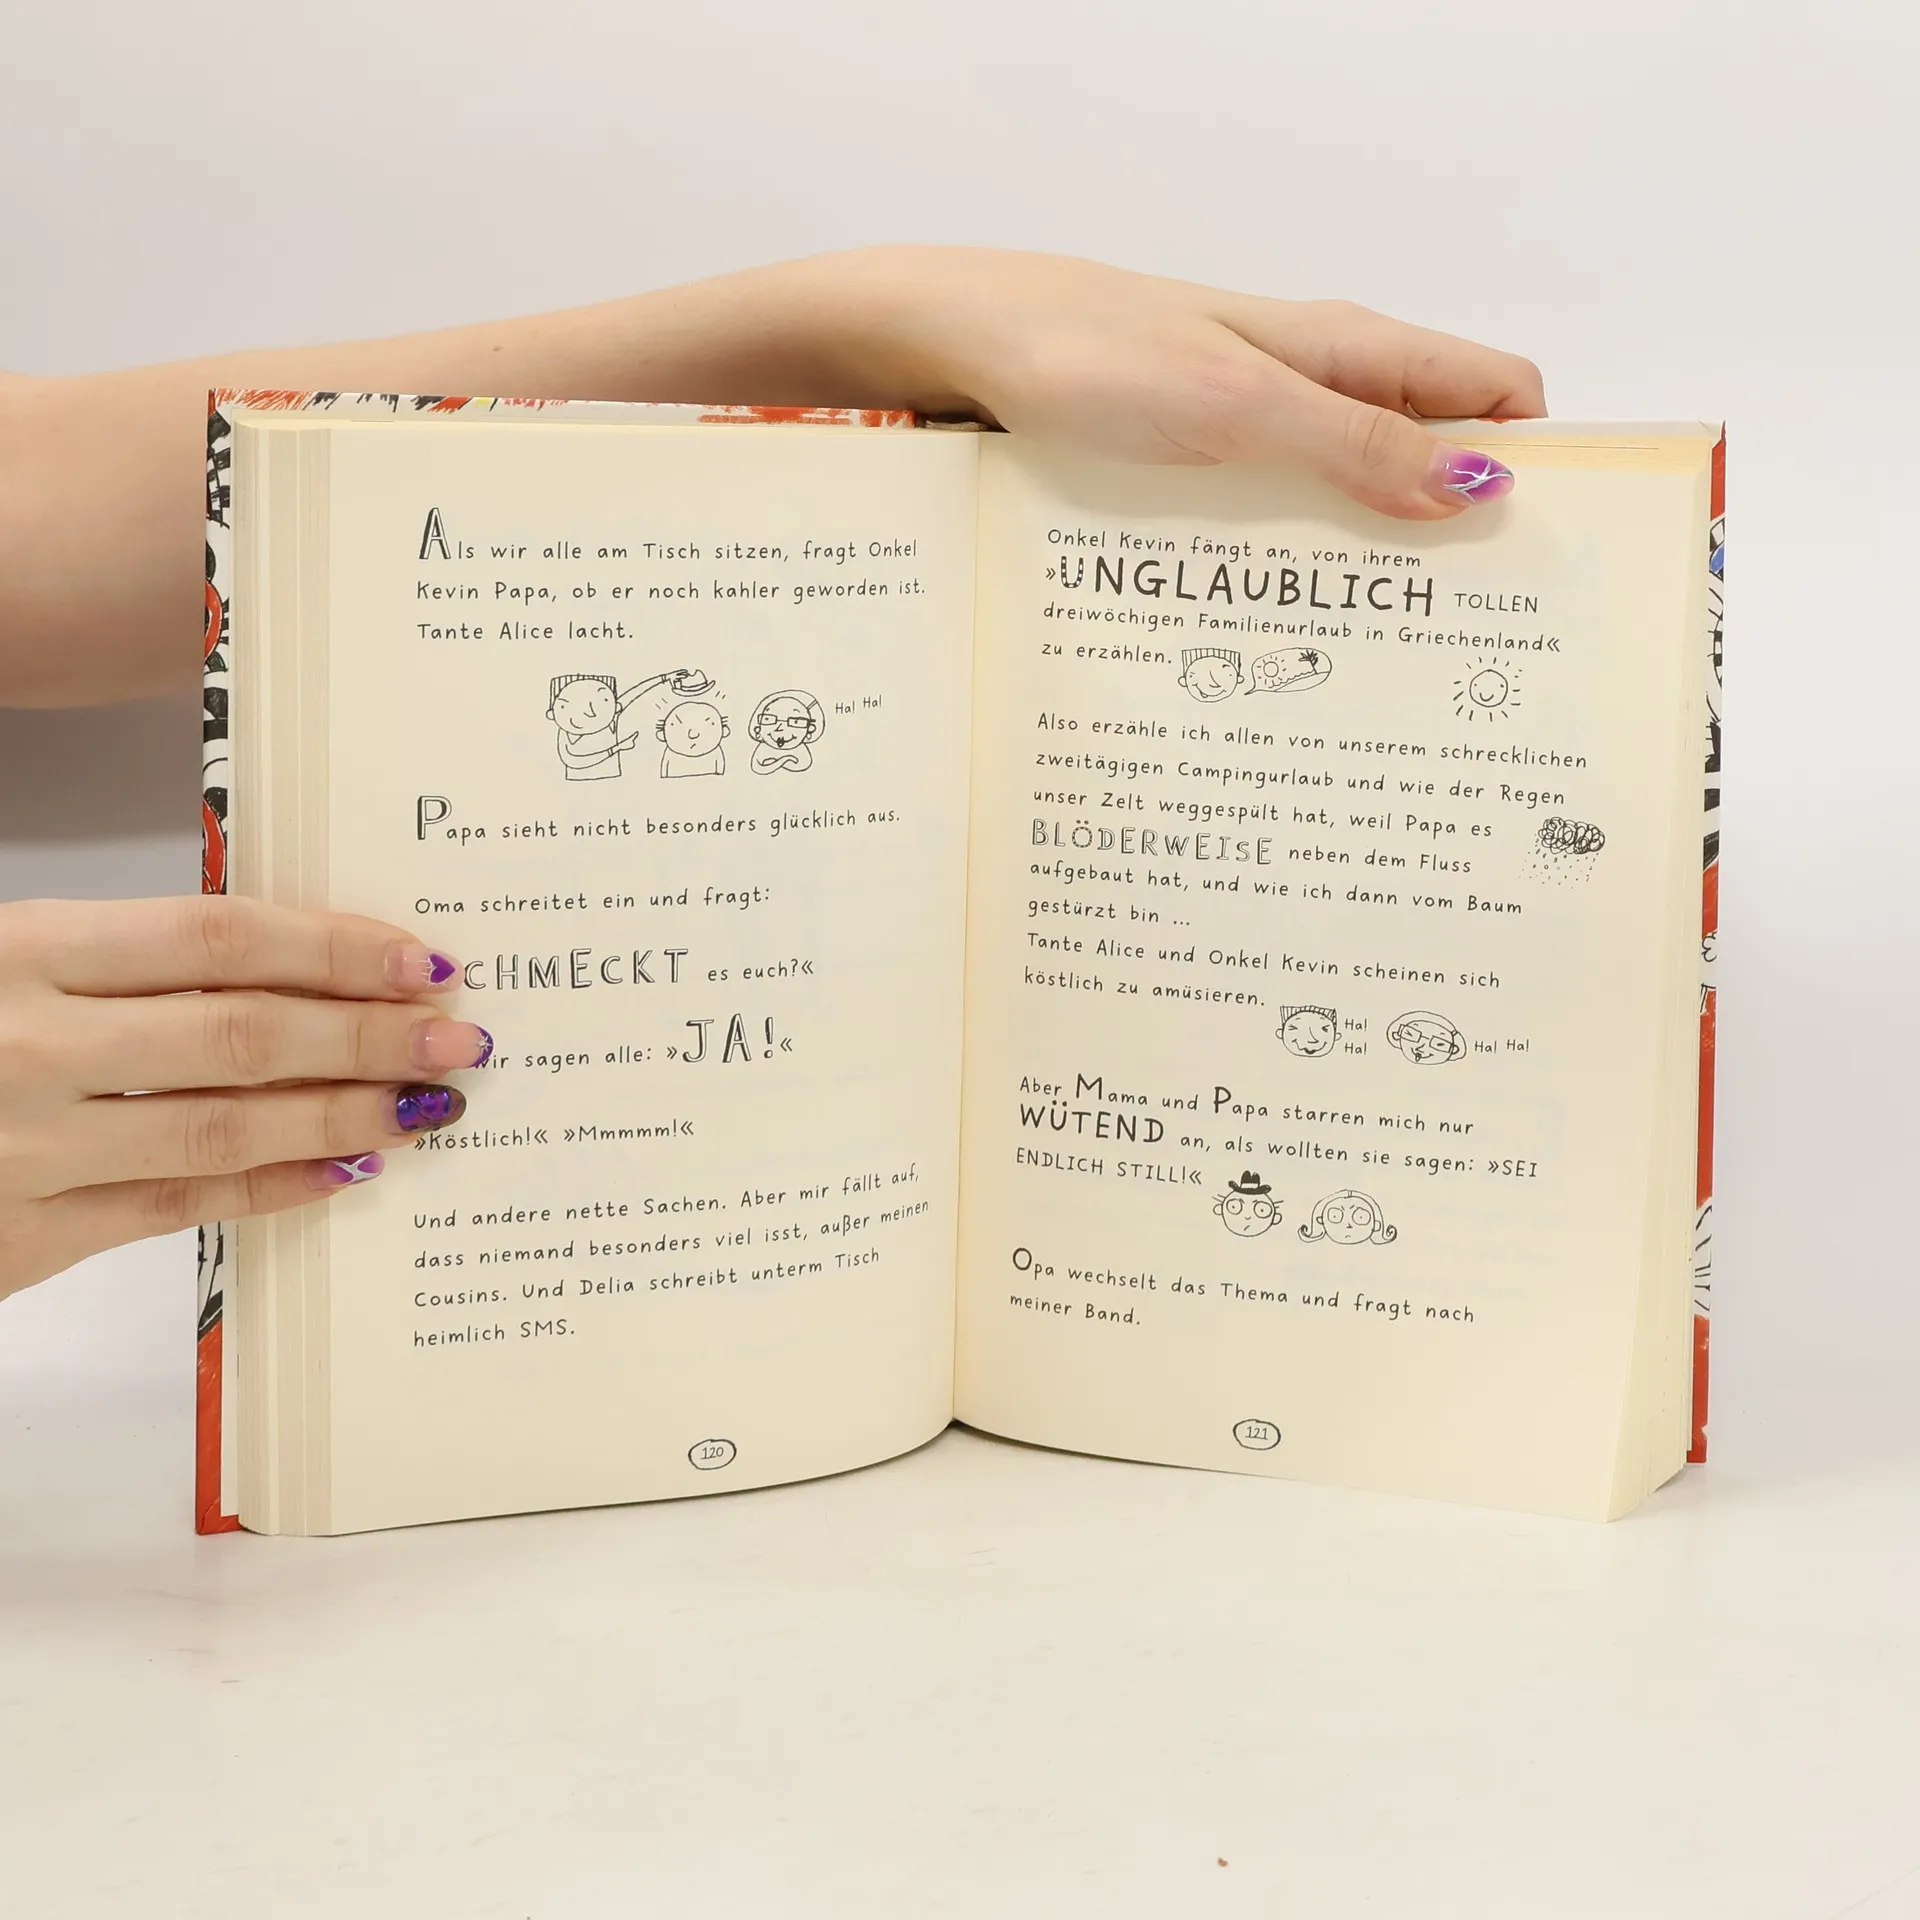 Als wir alle am Tisch sitzen, fragt Onkel
Kevin Papa, ob er noch kahler geworden ist.
Tante Alice lacht.
Ha! Ha!
Papa sieht nicht besonders glücklich aus.
Oma schreitet ein und fragt:
CHMECKT es euch?«
wir sagen alle: »JA!«
»Köstlich!« »Mmmmm!«
Und andere nette Sachen. Aber mir fällt auf,
dass niemand besonders viel isst, außer meinen
Cousins. Und Delia schreibt unterm Tisch
heimlich SMS.
120
Onkel Kevin fängt an, von ihrem
»UNGLAUBLICH TOLLEN
dreiwöchigen Familienurlaub in Griechenland«
zu erzählen.
Also erzähle ich allen von unserem schrecklichen
zweitägigen Campingurlaub und wie der Regen
unser Zelt weggespült hat, weil Papa es
BLÖDERWEISE neben dem Fluss
aufgebaut hat, und wie ich dann vom Baum
gestürzt bin ...
Tante Alice und Onkel Kevin scheinen sich
köstlich zu amüsieren.
Ha!
Ha!
Ha! Ha!
Aber Mama und Papa starren mich nur
WÜTEND an, als wollten sie sagen: »SEI
ENDLICH STILL!«
Opa wechselt das Thema und fragt nach
meiner Band.
121